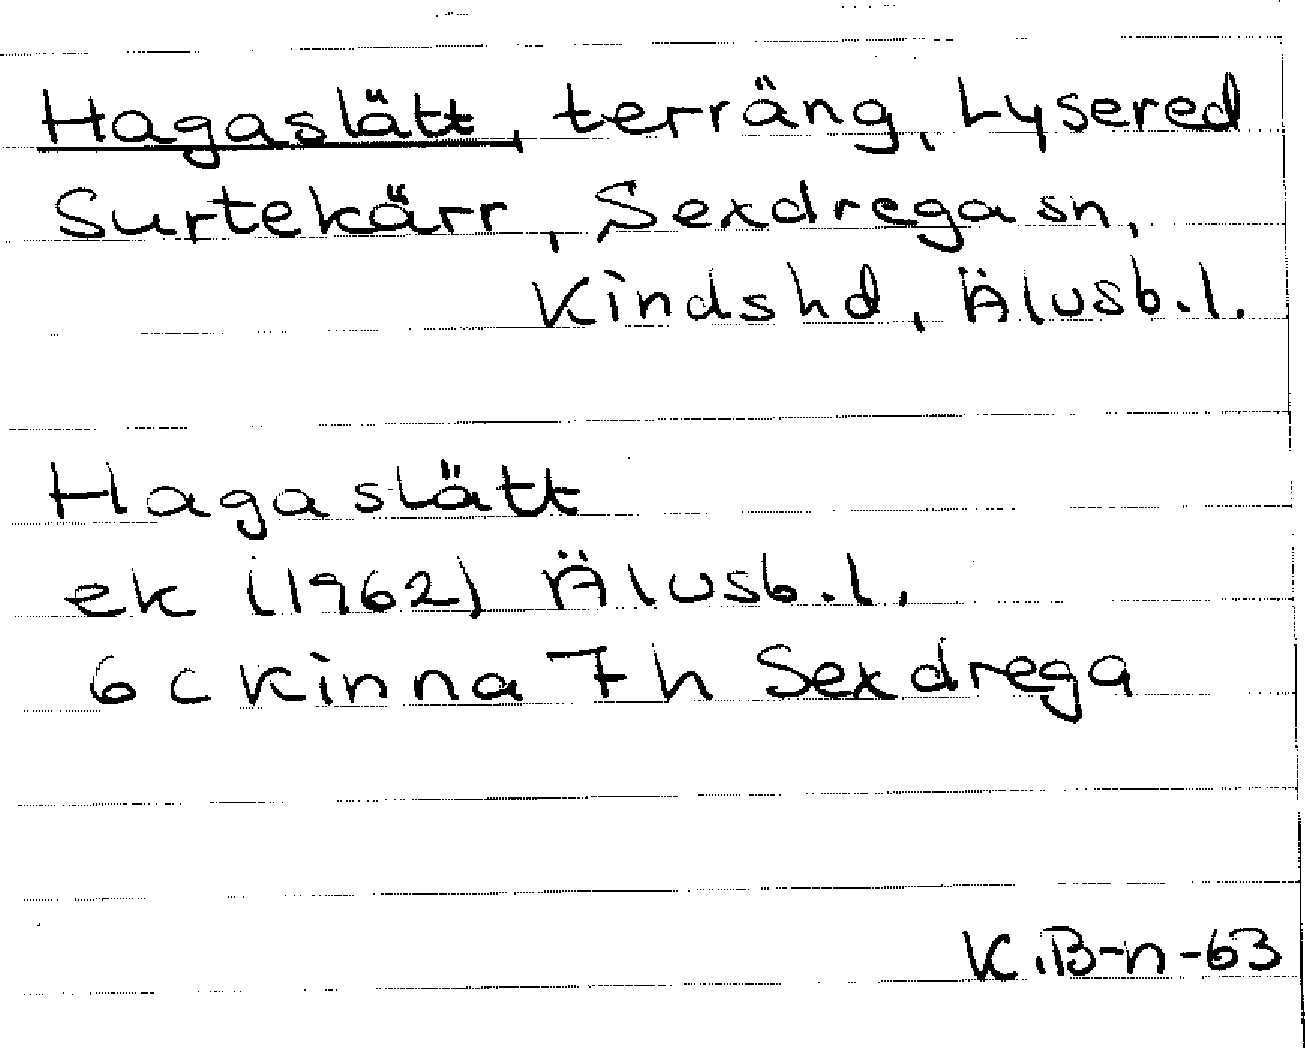 Hagaslätt, terräng, Lysered
Surtekärr, Sexdrega sn,
Kinds hd, Älvsb.l.
Hagaslätt
ek (1962) Älvsb.l.
6c Kinna 7h Sexdrega
K.B-n-63